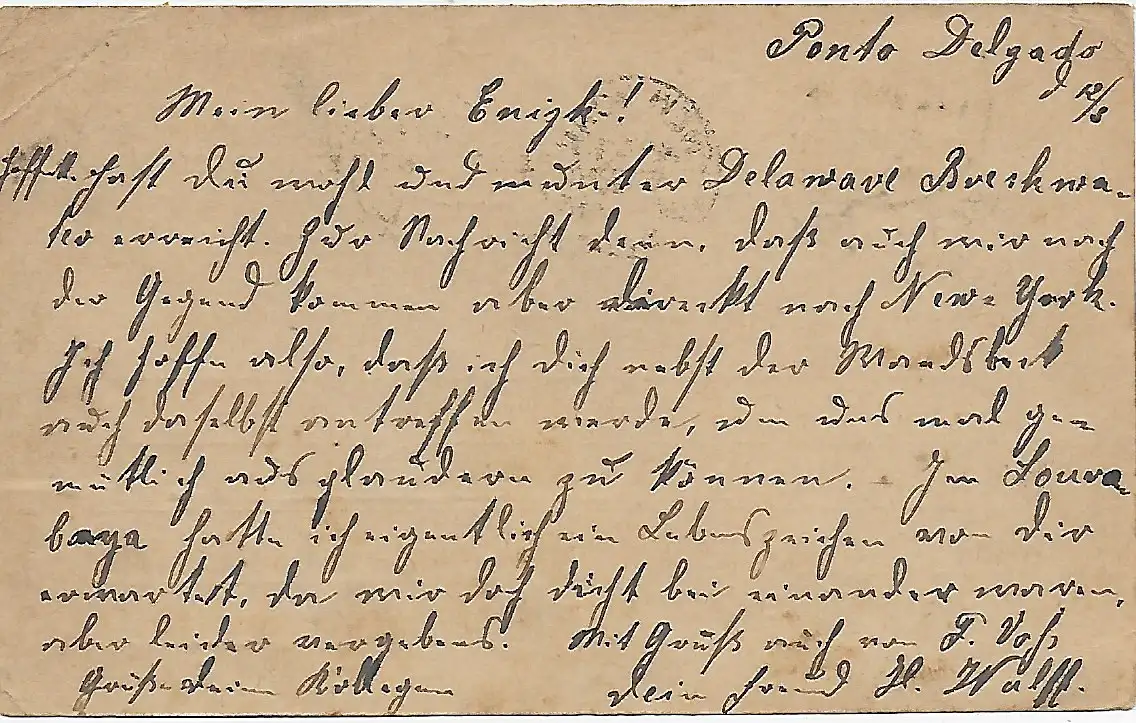 Ponto Delgado
12/8
Mein lieber Enigk!
Hofftl. hast du wohl und munter Delaware Breakwa-
ter erreicht. Zur Nachricht denn, daß auch wir nach
der Gegend kommen aber direckt nach New-York.
Ich hoffe also, daß ich dich nebst der Wandsbeck
auch daselbst antreffen werde, um uns mal ge-
mütlich ausplaudern zu können. In Soura-
baya hatte ich eigentlich ein Lebenszeichen von dir
erwartet, da wir doch dicht bei einander waren,
aber leider vergebens. Mit Gruß auch von F. Voß
Grüße deine Kollegen dein Freund H. Wulff.